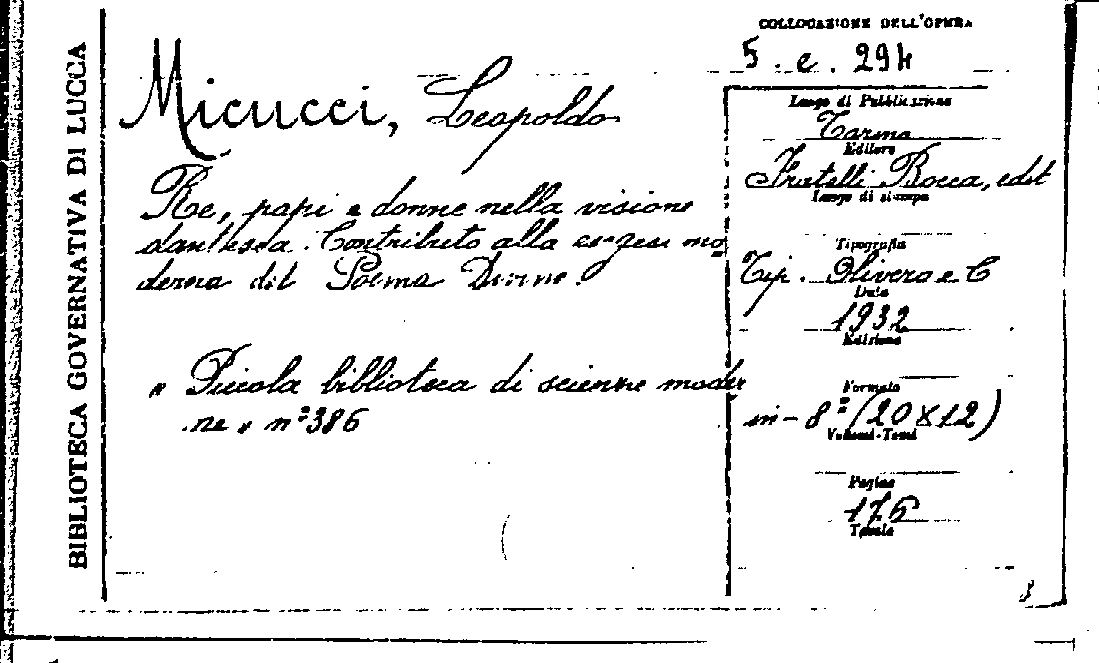 BIBLIOTECA GOVERNATIVA DI LUCCA
COLLOCAZIONE DELL'OPERA
5. e. 294
Micucci, Leopoldo
Re, papi e donne nella visione
dantesca. Contributo alla esegesi mo
derna del Poema Divino.
" Piccola biblioteca di scienze moder
ne " n° 386
Luogo di Pubblicazione
Torino
Editore
Fratelli Bocca, edit
Luogo di stampa
Tipografia
Tip. Olivero e C
Data
1932
Edizione
Formato
in-8° (20x12)
Volumi-Tomi
Pagine
176
Tavole